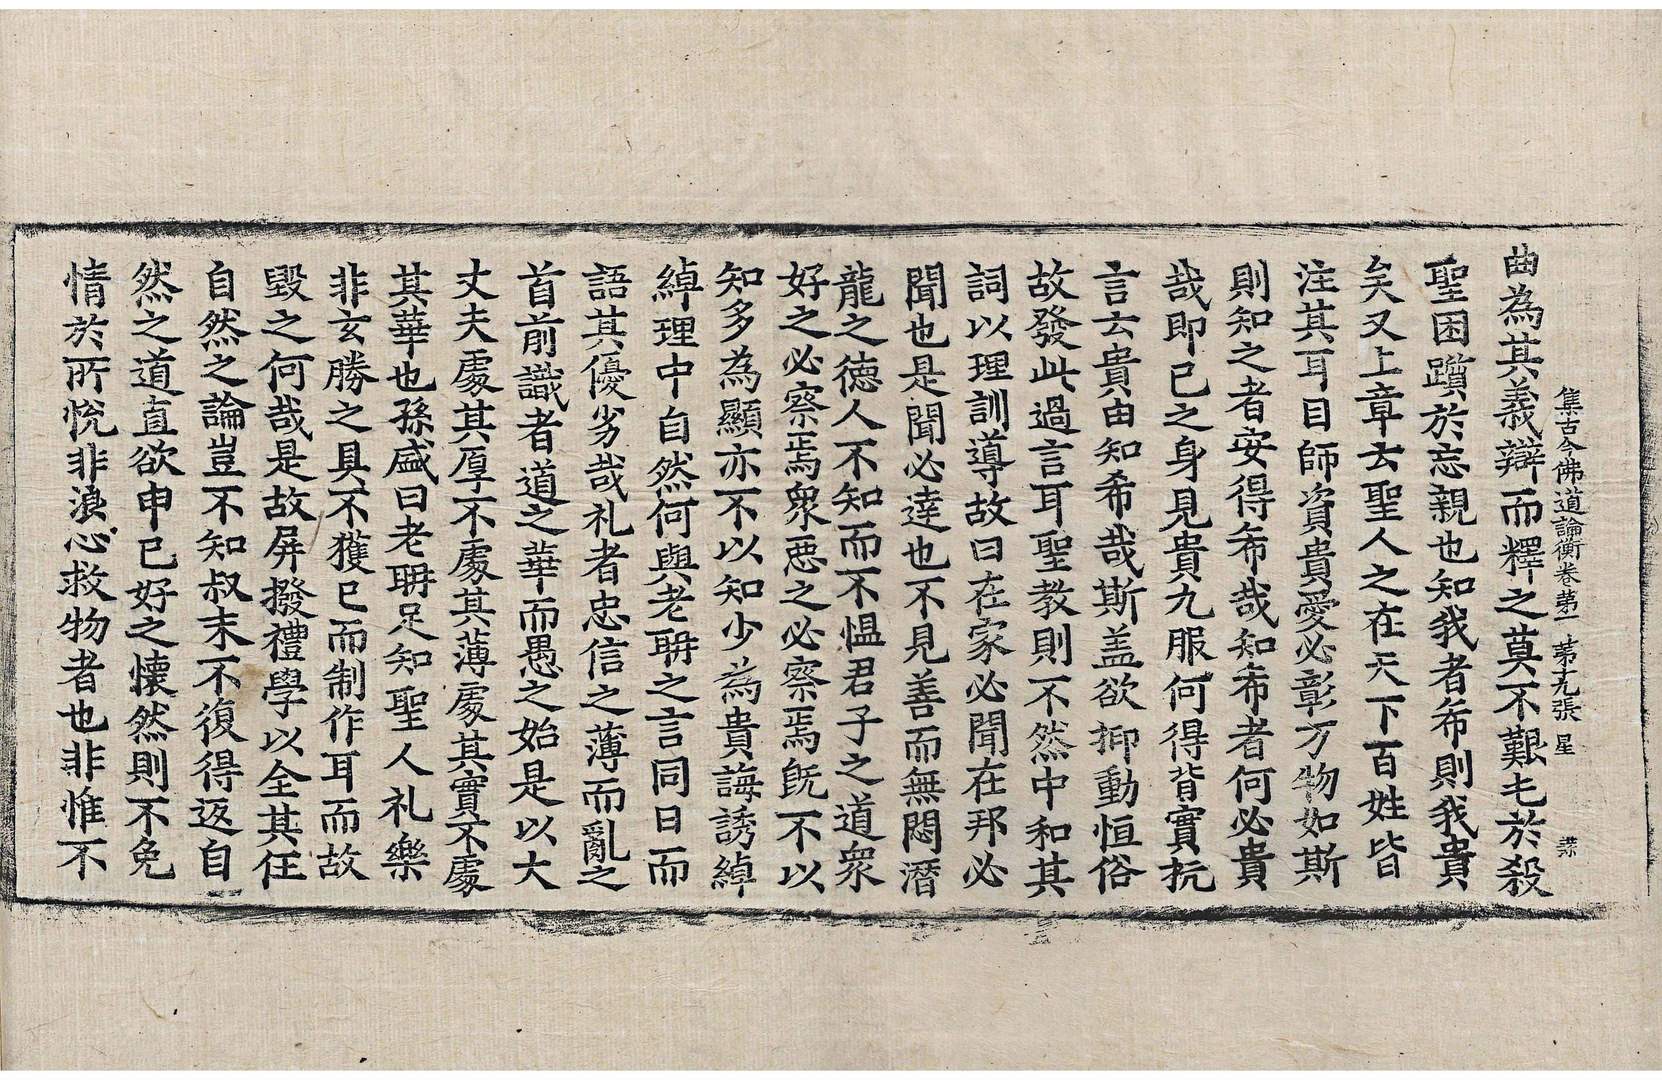 集古今佛道論衡卷第一 第十九張 星
曲為其義辯而釋之莫不艱毛於殺
聖困躓於忘親也知我者希則我貴
矣又上章云聖人之在天下百姓皆
注其耳目師資貴愛必彰万物如斯
則知之者安得希哉知希者何必貴
哉即已之身見貴九服何得背實抗
言云貴由知希哉斯盖欲抑動恒俗
故發此過言耳聖教則不然中和其
詞以理訓導故曰在家必聞在邦必
聞也是聞必達也不見善而無悶潛
龍之德人不知而不愠君子之道衆
好之必察焉衆惡之必察焉旣不以
知多為顯亦不以知少為貴誨誘綽
綽理中自然何與老聃之言同日而
語其優劣哉礼者忠信之薄而亂之
首前識者道之華而愚之始是以大
丈夫處其厚不處其薄處其實不處
其華也孫盛曰老聃足知聖人礼樂
非玄勝之具不獲已而制作耳而故
毀之何哉是故屏撥禮學以全其任
自然之論豈不知叔末不復得返自
然之道直欲申已好之懷然則不免
情於所悅非浪心救物者也非惟不